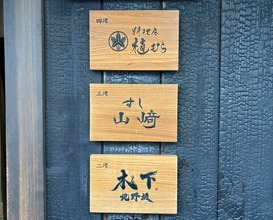 四階
料理屋
植むら
三階
すし
山﨑
二階
木下
北野坂